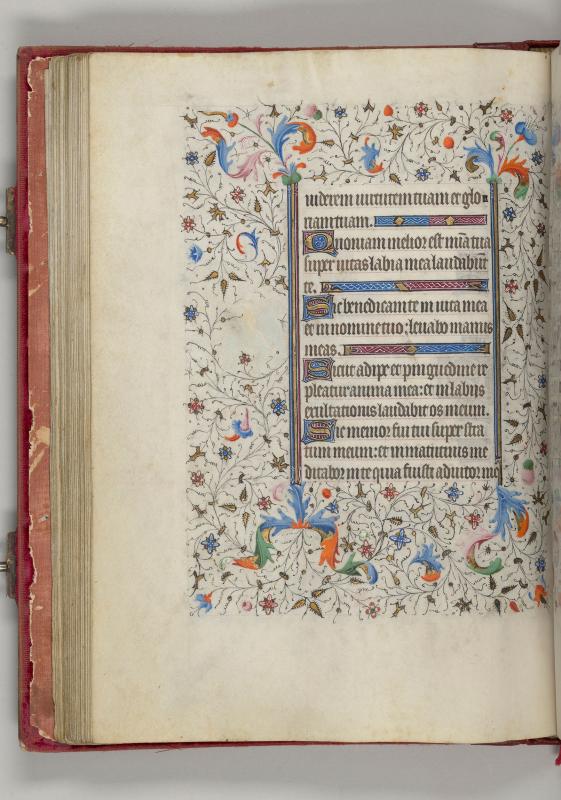 uiderem uirtutem tuam et glo
riam tuam.
Quoniam melior est mĩa tua
super uitas labia mea laudabũt
te.
Sic benedicam te in uita mea
et in nomine tuo: leuabo manus
meas.
Sicut adipe et pinguedine re
pleatur anima mea: et in labijs
exultationis laudabit os meum.
Sic memor fui tui super stra
tum meum: et in matutinis me
ditabor in te quia fuisti adiutor me